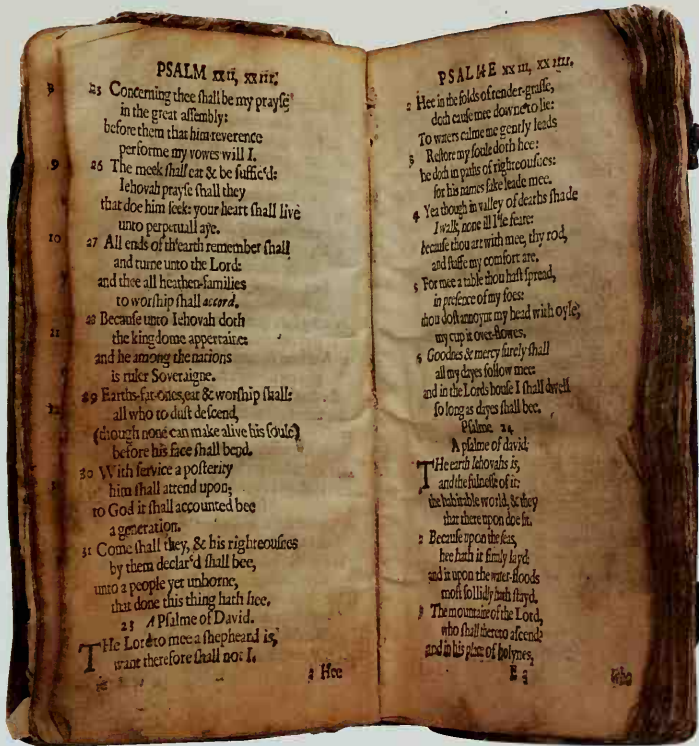 PSALM xxii, xxiii.
25 Concerning thee shall be my prayse
in the great assembly:
before them that him reverence
performe my vowes will I.
26 The meek shall eat & be suffic'd:
Iehovah prayse shall they
that doe him seek: your heart shall live
unto perpetuall aye.
27 All ends of th'earth remember shall
and turne unto the Lord:
and thee all heathen-families
to worship shall accord.
28 Because unto Iehovah doth
the kingdome appertaine:
and he among the nations
is ruler Soveraigne.
29 Earths-fat-ones, eat & worship shall:
all who to dust descend,
(though none can make alive his soule)
before his face shall bend.
30 With service a posterity
him shall attend upon;
to God it shall accounted bee
a generation.
31 Come shall they, & his righteousnes
by them declar'd shall bee,
unto a people yet unborne,
that done this thing hath hee.
23 A Psalme of David.
THe Lord to mee a shepheard is,
want therefore shall not I.
2 Hee
PSALME xx iii, xx iiii.
2 Hee in the folds of tender-grasse,
doth cause mee downe to lie:
To waters calme me gently leads
3 Restore my soule doth hee:
he doth in paths of righteousnes:
for his names sake leade mee.
4 Yea though in valley of deaths shade
I walk, none ill I'le feare:
because thou art with mee, thy rod,
and staffe my comfort are.
5 For mee a table thou hast spread,
in presence of my foes:
thou dost annoynt my head with oyle;
my cup it over-flowes.
6 Goodnes & mercy surely shall
all my dayes follow mee:
and in the Lords house I shall dwell
so long as dayes shall bee.
Psalme 24
A psalme of david:
THe earth Iehovahs is,
and the fulnesse of it:
the habitable world, & they
that there upon doe sit.
2 Because upon the seas,
hee hath it firmly layd:
and it upon the water-floods
most sollidly hath stayd,
3 The mountaine of the Lord,
who shall thereto ascend?
and in his place of holynes,
E 3
Who